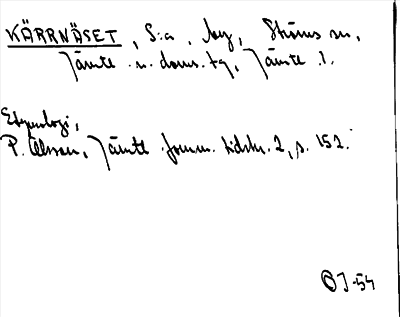 KÄRRNÄSET, S:a, by, Ströms sn,
Jämtl. n. doms. tg, Jämtl. l.
Etymologi,
P. Olsson, Jämtl. fornm. tidskr. 2, s. 152.
OJ-54